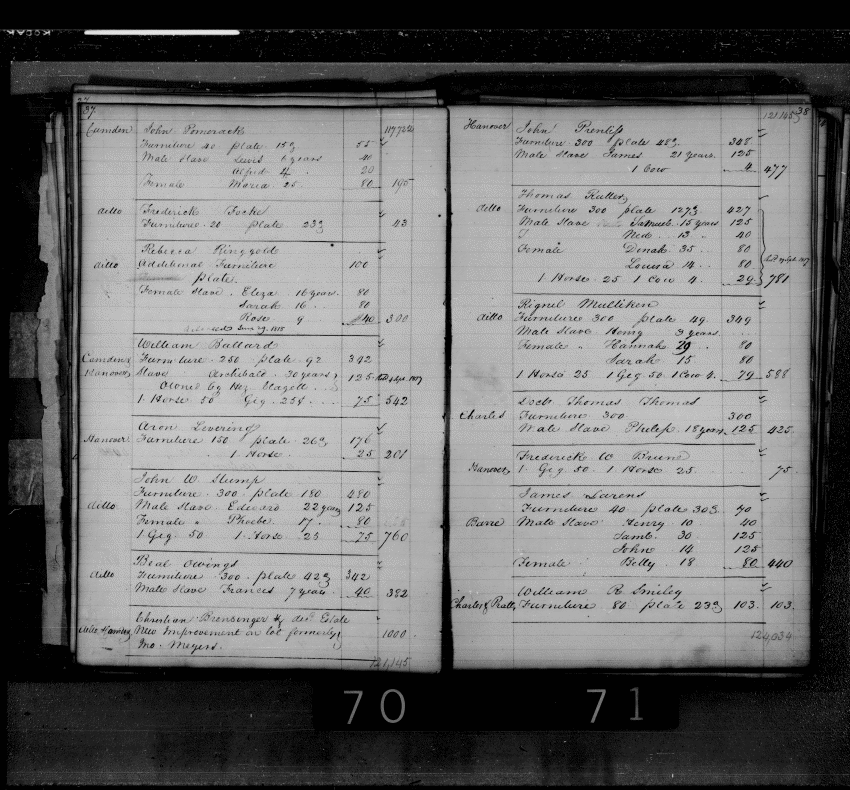 37
117722
Camden John Pomerack
Furniture 40 plate 15 55
Male Slave Lewis 6 years 40
Alfred 4 20
Female Maria 25 80 195
ditto Frederick Focke
Furniture 20 plate 23 43
Rebecca Ringgold
ditto Additional Furniture 100
plate
Female Slave Eliza 16 years 80
Sarah 16 80
Rose 9 40 300
William Ballard
Camden & Furniture 250 plate 92 342
Hanover Slave Archibald 30 years 125
Owned by Hez Clagett
1 Horse 50 Gig 25 75 542
Aron Levering
Hanover Furniture 150 plate 26 176
1 Horse 25 201
John W Stump
Furniture 300 plate 180 480
ditto Male Slave Edward 22 years 125
Female " Phoebe 17 80
1 Gig 50 1 Horse 25 75 760
Beal Owings
ditto Furniture 300 plate 42 342
Male Slave Frances 7 years 40 382
Christian Bronsinger dec Estate
New Improvement on lot formerly 1000
Jno Meyers
121,145
38
121145
Hanover John Prentiss
Furniture 300 plate 48 348
Male Slave James 21 years 125
1 Cow 4 477
Thomas Rutter
ditto Furniture 300 plate 127 427
Male Slave Samuel 15 years 125
Ned 13 40
Female Dinah 35 80
Louisa 14 80
1 Horse 25 1 Cow 4 29 781
Rignel Mulliken
ditto Furniture 300 plate 49 349
Male Slave Henry 3 years
Female " Hannah 29 80
Sarah 15 80
1 Horse 25 1 Gig 50 1 Cow 4 79 588
Doctr Thomas Thomas
Charles Furniture 300 300
Male Slave Philip 18 years 125 425
Frederick W Brune
Hanover 1 Gig 50 1 Horse 25 75
James Larens
Furniture 40 plate 30 70
Barre Male Slave Henry 10 40
Samb 30 125
John 14 125
Female Betty 18 80 440
William R Smiley
Charles & Pratt Furniture 80 plate 23 103 103
124,034
70
71